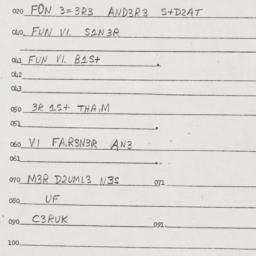 020 FON 3=3R3 AND3R3 S+D2AT
040 FUN VI. S1N3R
041 FUN VI. B1S+
042
043
050 3R 1S+ THA.M
051
060 VI FA.R3N3R AN3
061
070 M3R D2UML3 N3S 071
080 UF
090 C3RUK 091
100